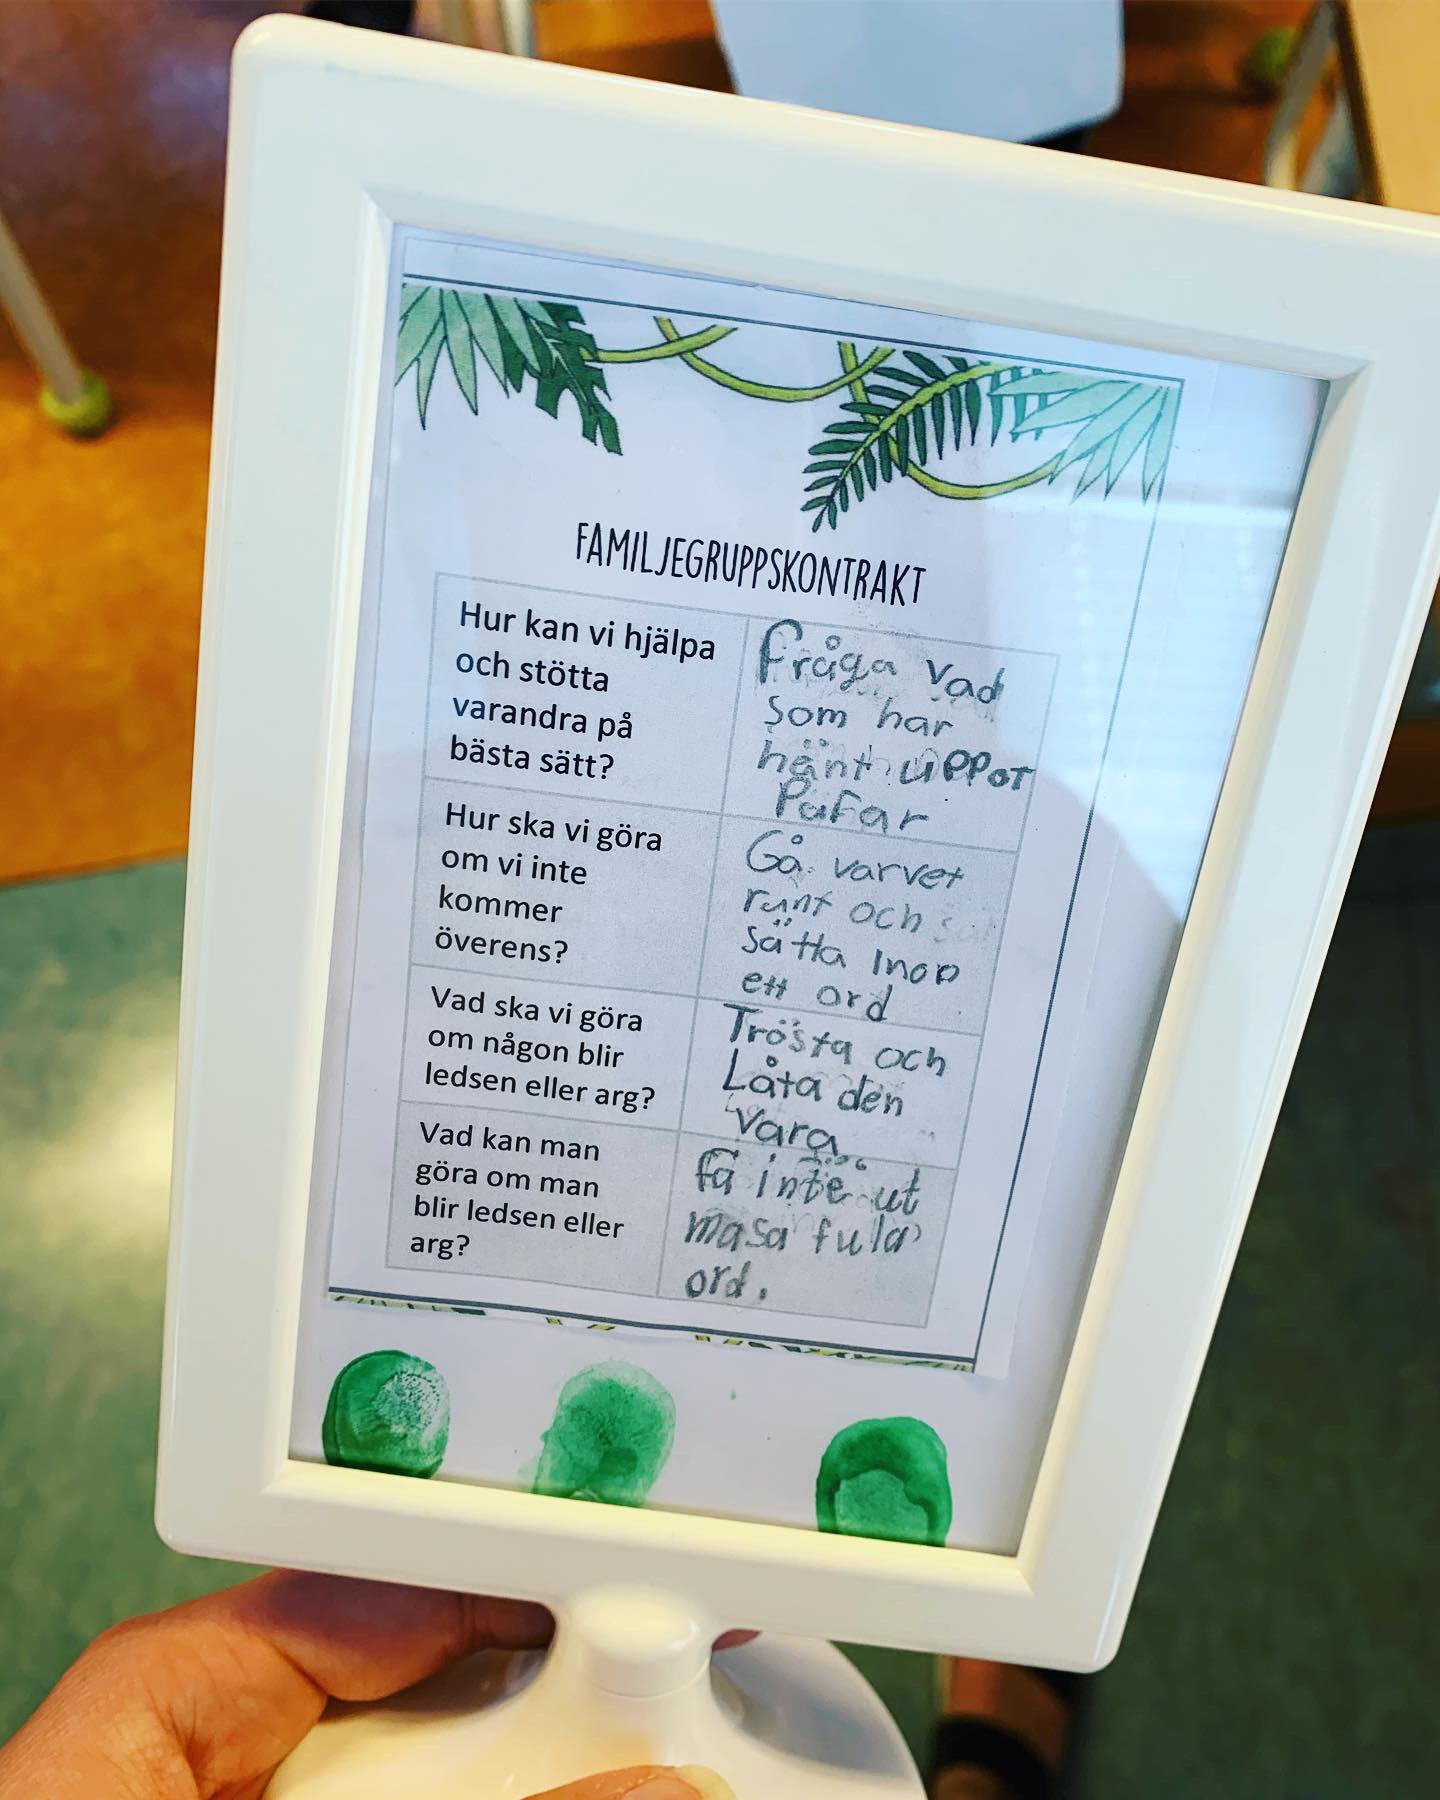 FAMILJEGRUPPSKONTRAKT
Hur kan vi hjälpa
och stötta
varandra på
bästa sätt?
Fråga vad
som har
hänt uppor
Påfar
Hur ska vi göra
om vi inte
kommer
överens?
Gå varvet
runt och
sätta inop
ett ord
Vad ska vi göra
om någon blir
ledsen eller arg?
Trösta och
Låta den
vara.
Vad kan man
göra om man
blir ledsen eller
arg?
få inte ut
masa fula
ord.